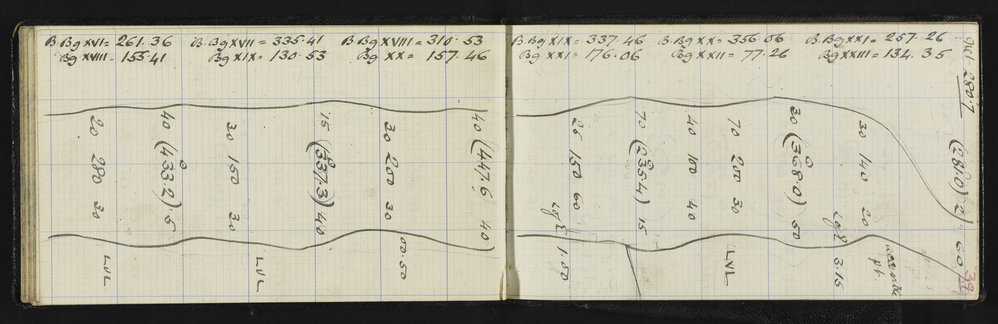 B. Bg XVI = 261.36 B. Bg XVII = 335.41 B. Bg XVIII = 310.53
Bg XVIII = 155.41 Bg XIX = 130.53 Bg XX = 157.46
20 280 30
LVL
40 (433.2) 5
30 150 30
LVL
15 (337.3) 40
30 200 30
00.50
40 (447.6) 40
B. Bg XIX = 337.46 B. Bg XX = 356.06 B. Bg XXI = 257.26
Bg XXI = 176.06 Bg XXII = 77.26 Bg XXIII = 134.35
280.7
25 150 60
Lgt 1.00
70 (235.4) 15
40 100 40
70 200 30
LVL
30 (368.0) 50
30 140 20
Lgt 3.15
pt.
(281.0) 2
60
39